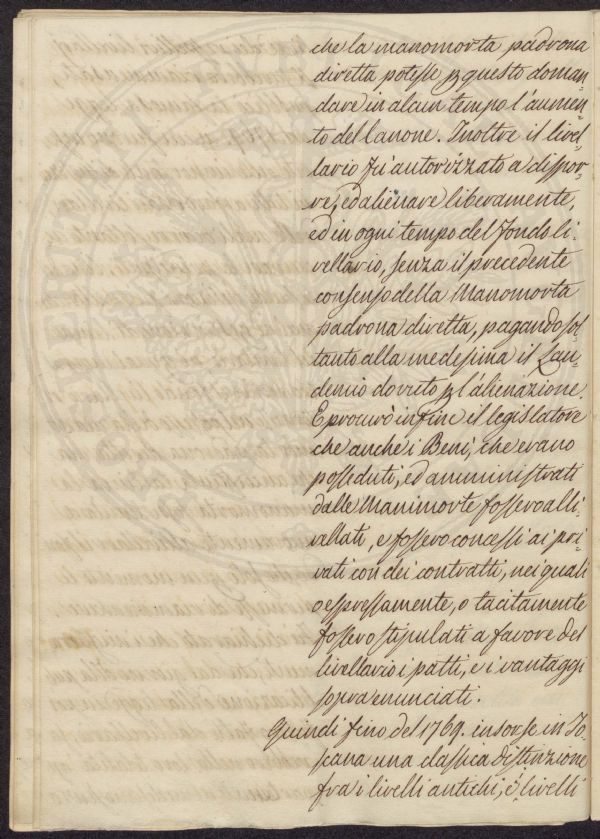 che la manomorta padrona
diretta potesse p questo doman=
dare in alcun tempo l'aumen=
to del Canone. Inoltre il livel=
lario fù autorizzato a dispor=
re, ed alienare liberamente,
ed in ogni tempo del Fondo li=
vellario, senza il precedente
consenso della Manomorta
padrona diretta, pagando sol=
tanto alla medesima il Lau=
demio dovuto p l'alienazione.
E procurò infine il legislatore
che anche i Beni, che erano
posseduti, ed amministrati
dalle Manimorte fossero alli=
vellati, e fossero concessi ai pri=
vati con dei contratti, nei quali
o espressamente, o tacitamente
fossero stipulati a favore del
livellario i patti, e i vantaggi
sopra enunciati.
Quindi fino del 1769. insorse in To=
scana una classica distinzione
fra i livelli antichi, e i livelli